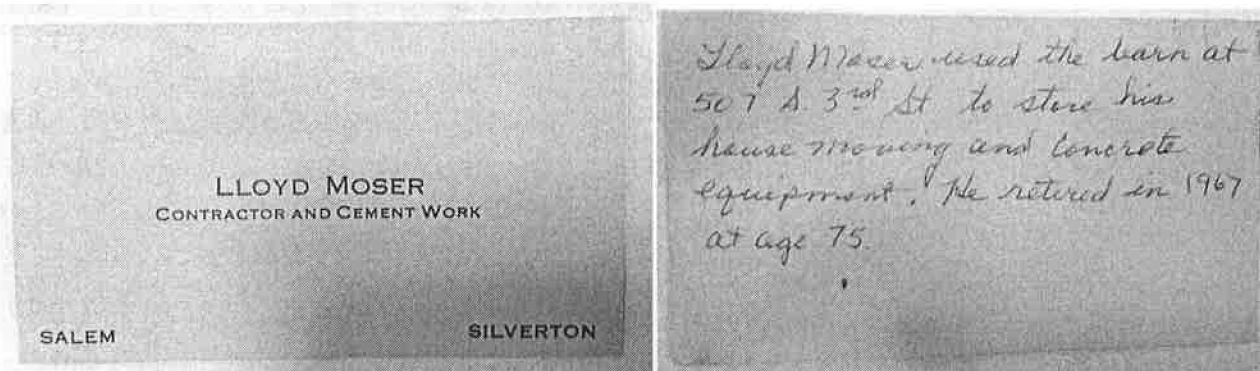 LLOYD MOSER
CONTRACTOR AND CEMENT WORK
SALEM
SILVERTON
Lloyd Moser used the barn at
507 S. 3rd St to store his
house moving and Concrete
equipment. He retired in 1967
at age 75.